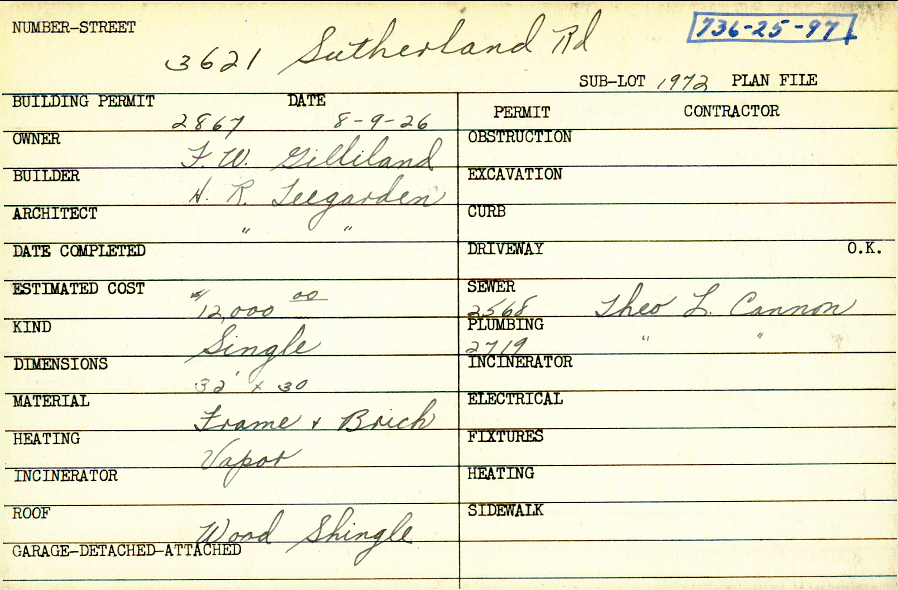 NUMBER-STREET
3621 Sutherland Rd
736-25-97
SUB-LOT 1972 PLAN FILE
BUILDING PERMIT DATE
2867 8-9-26
OWNER
F. W. Gilliland
BUILDER
H. R. Teegarden
ARCHITECT
" "
DATE COMPLETED
ESTIMATED COST
$12,000 00
KIND
Single
DIMENSIONS
32' x 30
MATERIAL
Frame + Brick
HEATING
Vapor
INCINERATOR
ROOF
Wood Shingle
GARAGE-DETACHED-ATTACHED
PERMIT CONTRACTOR
OBSTRUCTION
EXCAVATION
CURB
DRIVEWAY O.K.
SEWER
2568 Theo L. Cannon
PLUMBING
2719 " "
INCINERATOR
ELECTRICAL
FIXTURES
HEATING
SIDEWALK